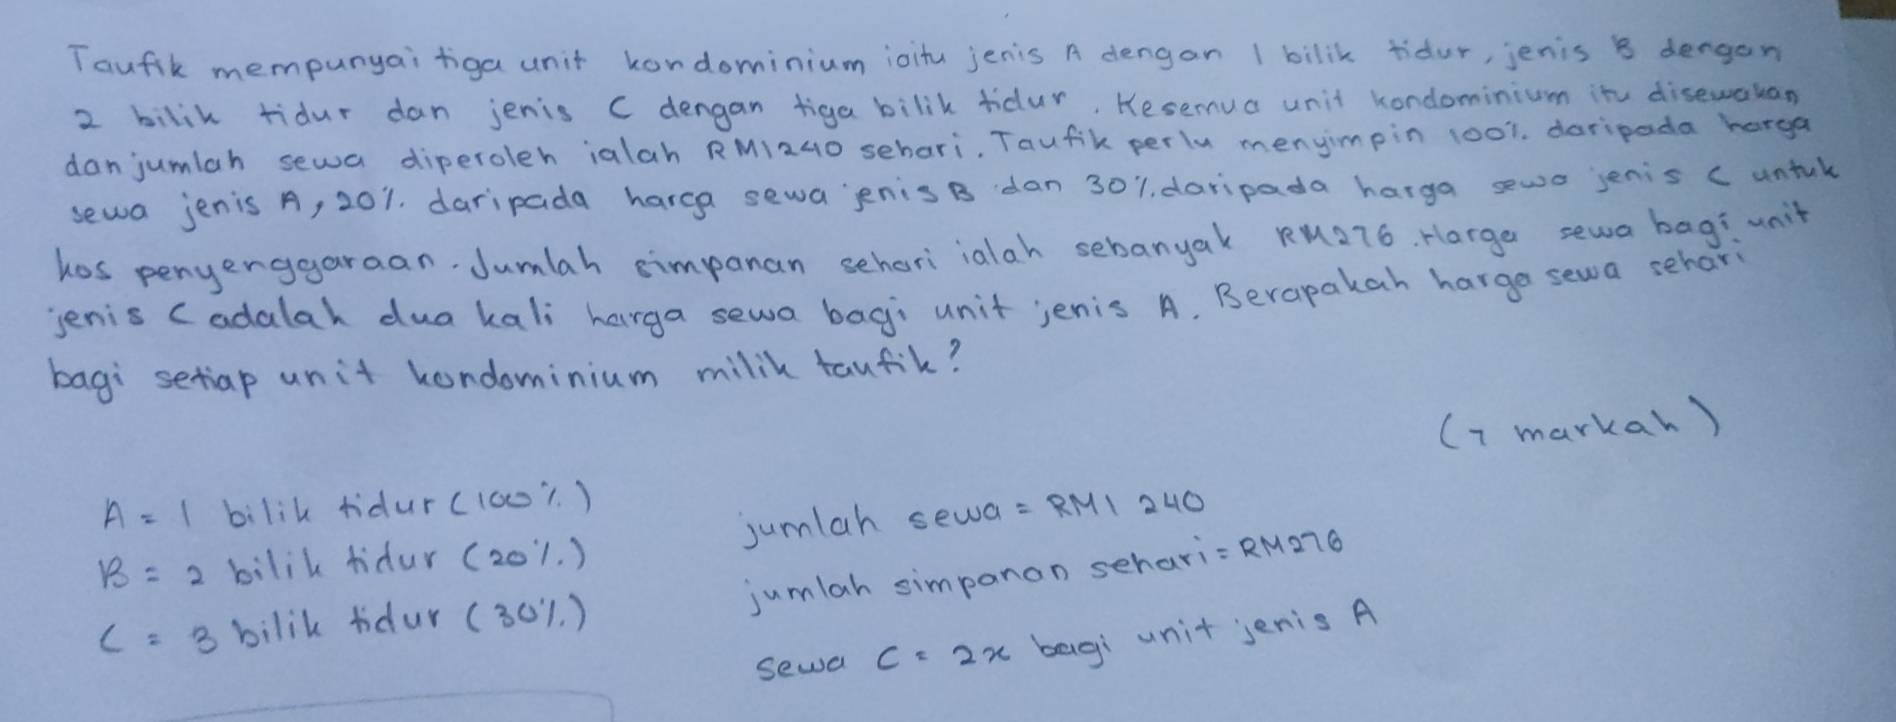 Taufik mempunyai tiga unit kondominium iaitu jenis A dengan 1 bilik tidur, jenis B dengan
2 bilik tidur dan jenis C dengan tiga bilik tidur. Kesemua unit kondominium itu disewakan
dan jumlah sewa diperoleh ialah RM1240 sehari. Taufik perlu menyimpin 100% daripada harga
sewa jenis A, 20% daripada harga sewa jenis B dan 30% daripada harga sewa jenis C untuk
kos penyenggaraan. Jumlah simpanan sehari ialah sebanyak RM276. Harga sewa bagi unit
jenis C adalah dua kali harga sewa bagi unit jenis A. Berapakah harga sewa sehari
bagi setiap unit kondominium milik taufik?
(7 markah)
A = 1 bilik tidur (100%)
B = 2 bilik tidur (20%)
C = 3 bilik tidur (30%)
jumlah sewa = RM1 240
jumlah simpanan sehari = RM276
sewa C = 2x bagi unit jenis A